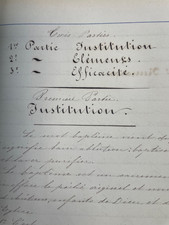 Trois Parties
1re Partie Institution
2e " Eléments.
3e " Efficacité.
Premiere Partie
Institution.
Le mot baptême vient du
signifie bain, ablution; baptiser
et laver purifier.
Le baptême est un sacrement
efface le péché originel et nous
enfants de Dieu et de
l'Eglise.